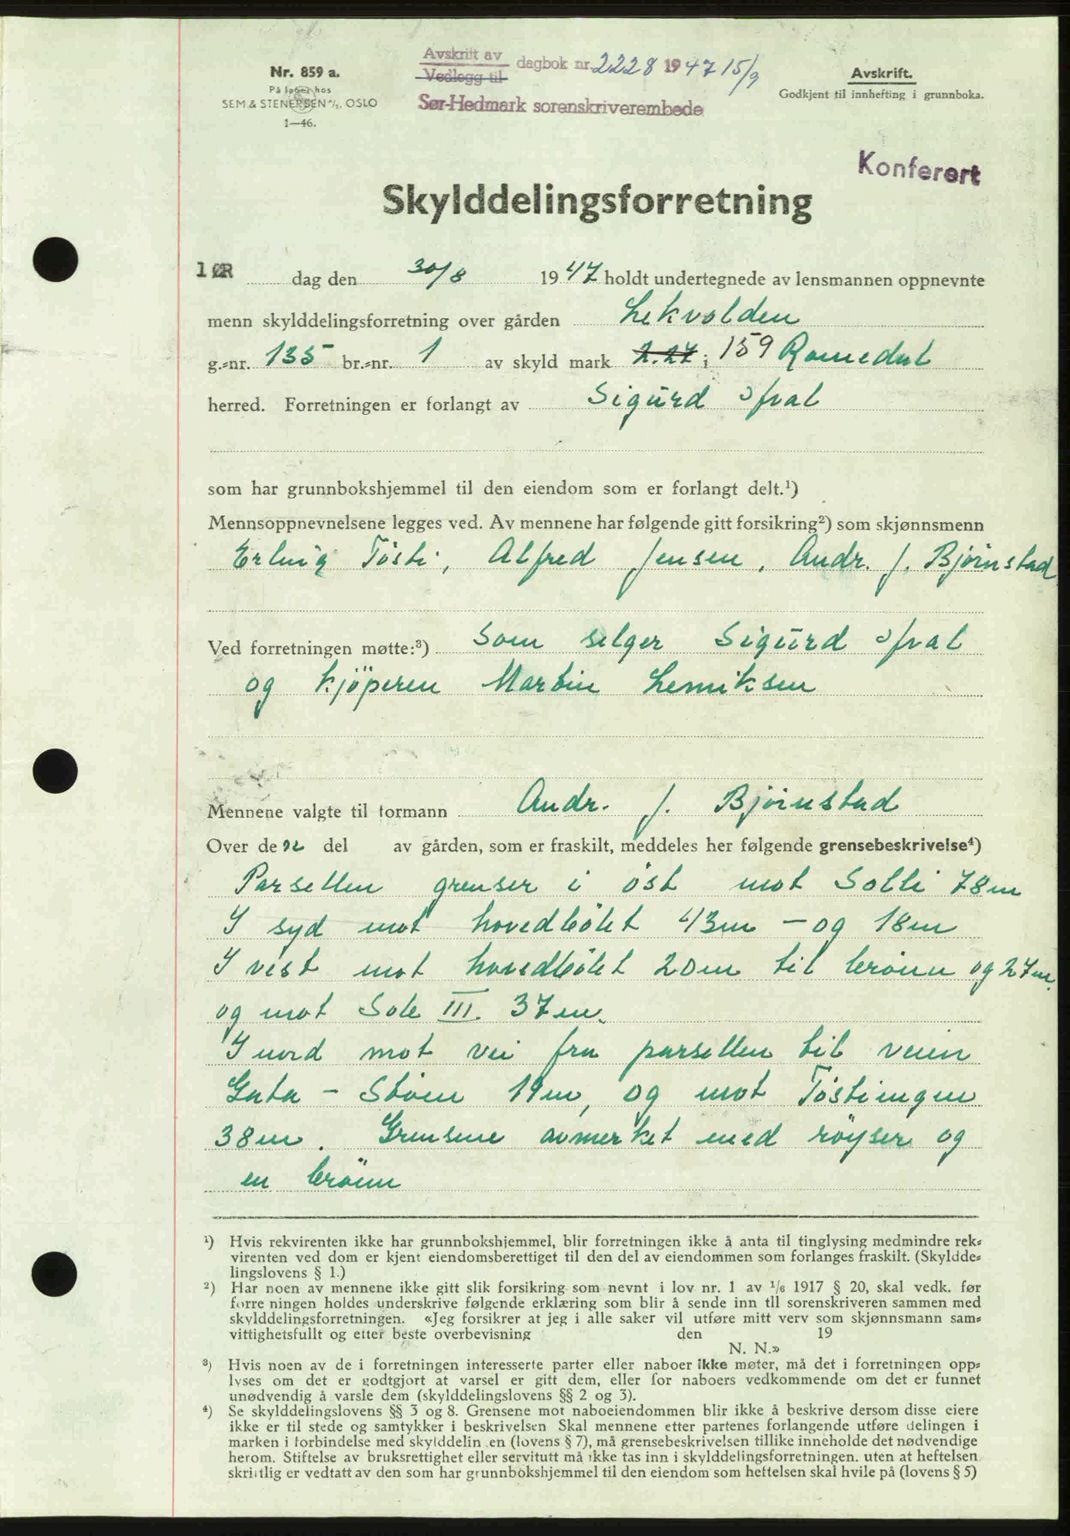 Nr. 859 a.
På lager hos
SEM & STENERSEN A/S, OSLO
1—46.
Avskrift av
Vedlegg til
dagbok nr. 2228 1947 15/9
Sør-Hedmark sorenskriverembede
Avskrift.
Godkjent til innhefting i grunnboka.
Konferert
Skylddelingsforretning
lør dag den 30/8 1947 holdt undertegnede av lensmannen oppnevnte
menn skylddelingsforretning over gården Lekvolden
g.-nr. 135 br.-nr. 1 av skyld mark 2.27 i 159 Romedal
herred. Forretningen er forlangt av Sigurd
som har grunnbokshjemmel til den eiendom som er forlangt delt.¹)
Mennsoppnevnelsene legges ved. Av mennene har følgende gitt forsikring²) som skjønnsmenn
Erling Tösti, Alfred Jensen, Andr. J. Björnstad
Ved forretningen møtte:³) Som selger Sigurd
og kjöperen Martin Henriksen
Mennene valgte til formann Andr. J. Björnstad
Over de n del av gården, som er fraskilt, meddeles her følgende grensebeskrivelse⁴)
Parsellen grenser i öst mot Solli 78m
I syd mot hovedbölet 43m - og 18m
I vest mot hovedbölet 20m til brönn og 27m.
og mot Sole III. 37m.
I nord mot vei fra parsellen til veien
Gata - Stöen 19m, og mot Töstiengen
38m. Grensene avmerket med röyser og
en brönn
¹) Hvis rekvirenten ikke har grunnbokshjemmel, blir forretningen ikke å anta til tinglysing medmindre rek-
virenten ved dom er kjent eiendomsberettiget til den del av eiendommen som forlanges fraskilt. (Skyldde-
lingslovens § 1.)
²) Har noen av mennene ikke gitt slik forsikring som nevnt i lov nr. 1 av 1/6 1917 § 20, skal vedk. før
forretningen holdes underskrive følgende erklæring som blir å sende inn til sorenskriveren sammen med
skylddelingsforretningen. «Jeg forsikrer at jeg i alle saker vil utføre mitt verv som skjønnsmann sam-
vittighetsfullt og etter beste overbevisning den 19
N. N.»
³) Hvis noen av de i forretningen interesserte parter eller naboer ikke møter, må det i forretningen opp-
lyses om det er godtgjort at varsel er gitt dem, eller for naboers vedkommende om det er funnet
unødvendig å varsle dem (skylddelingslovens §§ 2 og 3).
⁴) Se skylddelingslovens §§ 3 og 8. Grensene mot naboeiendommen blir ikke å beskrive dersom disse eiere
ikke er til stede og samtykker i beskrivelsen Skal mennene etter partenes forlangende utføre delingen i
marken i forbindelse med skylddelingen (lovens § 7), må grensebeskrivelsen tillike inneholde det nødvendige
herom. Stiftelse av bruksrettighet eller servitutt må ikke tas inn i skylddelingsforretningen. uten at heftelsen
skriftlig er vedtatt av den som har grunnbokshjemmel til den eiendom som heftelsen skal hvile på (lovens § 5)